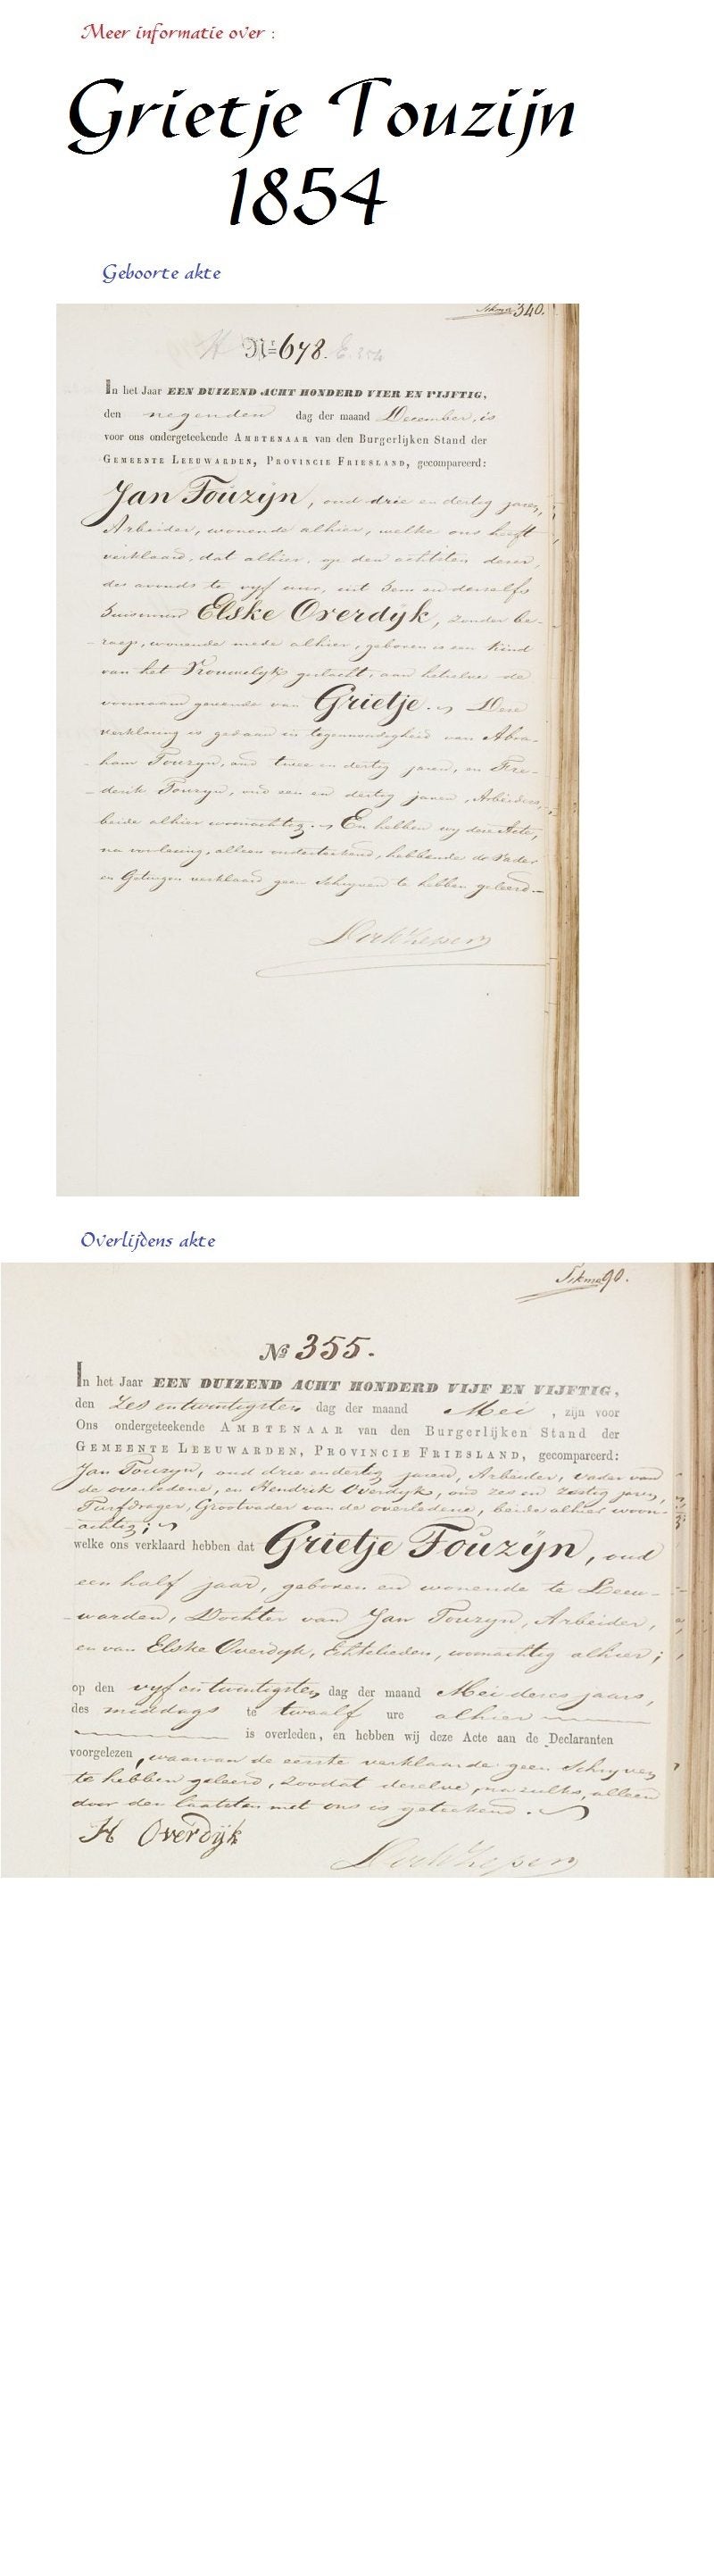 Meer informatie over :
Grietje Touzijn
1854
Geboorte akte
340.
No 678.
In het Jaar EEN DUIZEND ACHT HONDERD VIER EN VIJFTIG,
den negenden dag der maand December, is
voor ons ondergeteekende AMBTENAAR van den Burgerlijken Stand der
GEMEENTE LEEUWARDEN, PROVINCIE FRIESLAND, gecompareerd:
Jan Touzyn, oud drie en dertig jaren,
Arbeider, wonende alhier, welke ons heeft
verklaard, dat alhier, op den achtsten dezer,
des avonds te vyf uur, uit hem en derzelfs
huisvrouw Elske Overdyk, zonder be-
roep, wonende mede alhier, geboren is een kind
van het Vrouwelyk geslacht, aan hetwelk de
voornaam gevende van Grietje. Deze
verklaring is gedaan in tegenwoordigheid van Abra-
ham Touzyn, oud twee en dertig jaren, en Fre-
derik Touzyn, oud een en dertig jaren, Arbeiders,
beide alhier woonachtig. En hebben wy deze Acte,
na voorlezing, alleen onderteekend, hebbende de Vader
en Getuigen verklaard geen schryven te hebben geleerd.
Overlijdens akte
90.
No 355.
In het Jaar EEN DUIZEND ACHT HONDERD VIJF EN VIJFTIG,
den zes en twintigsten dag der maand Mei, zijn voor
Ons ondergeteekende AMBTENAAR van den Burgerlijken Stand der
GEMEENTE LEEUWARDEN, PROVINCIE FRIESLAND, gecompareerd:
Jan Touzyn, oud drie en dertig jaren, Arbeider, vader van
de overledene, en Hendrik Overdyk, oud zes en zestig jaren,
Turfdrager, Grootvader van de overledene, beide alhier woon-
achtig;
welke ons verklaard hebben dat Grietje Touzyn, oud
een half jaar, geboren en wonende te Leeu-
warden, Dochter van Jan Touzyn, Arbeider,
en van Elske Overdyk, Echtelieden, woonachtig alhier;
op den vyf en twintigsten dag der maand Mei dezes jaars,
des middags te twaalf ure alhier
is overleden, en hebben wij deze Acte aan de Declaranten
voorgelezen, waarvan de eerste verklaarde geen schryven
te hebben geleerd, zoodat dezelve, na zulks, alleen
door den laatsten met ons is geteekend.
H Overdijk